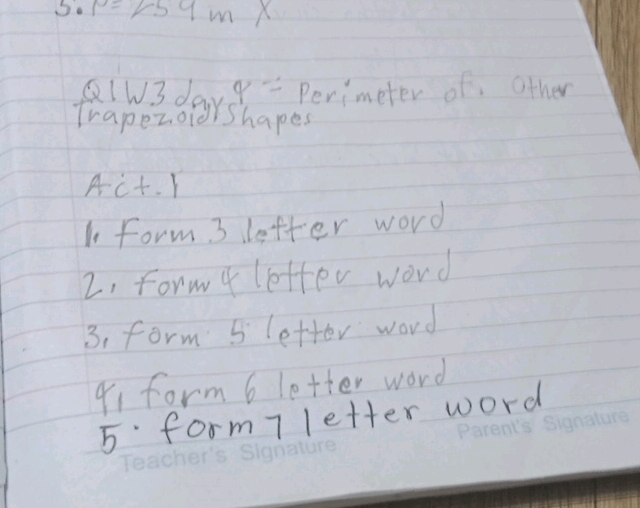 5. P = 259 m X
Q1W3 day 4 - Perimeter of. Other
Trapezoid/Shapes
Act. 1
1. form 3 letter word
2. form 4 letter word
3. form 5 letter word
4. form 6 letter word
5. form 7 letter word
Teacher's Signature
Parent's Signature